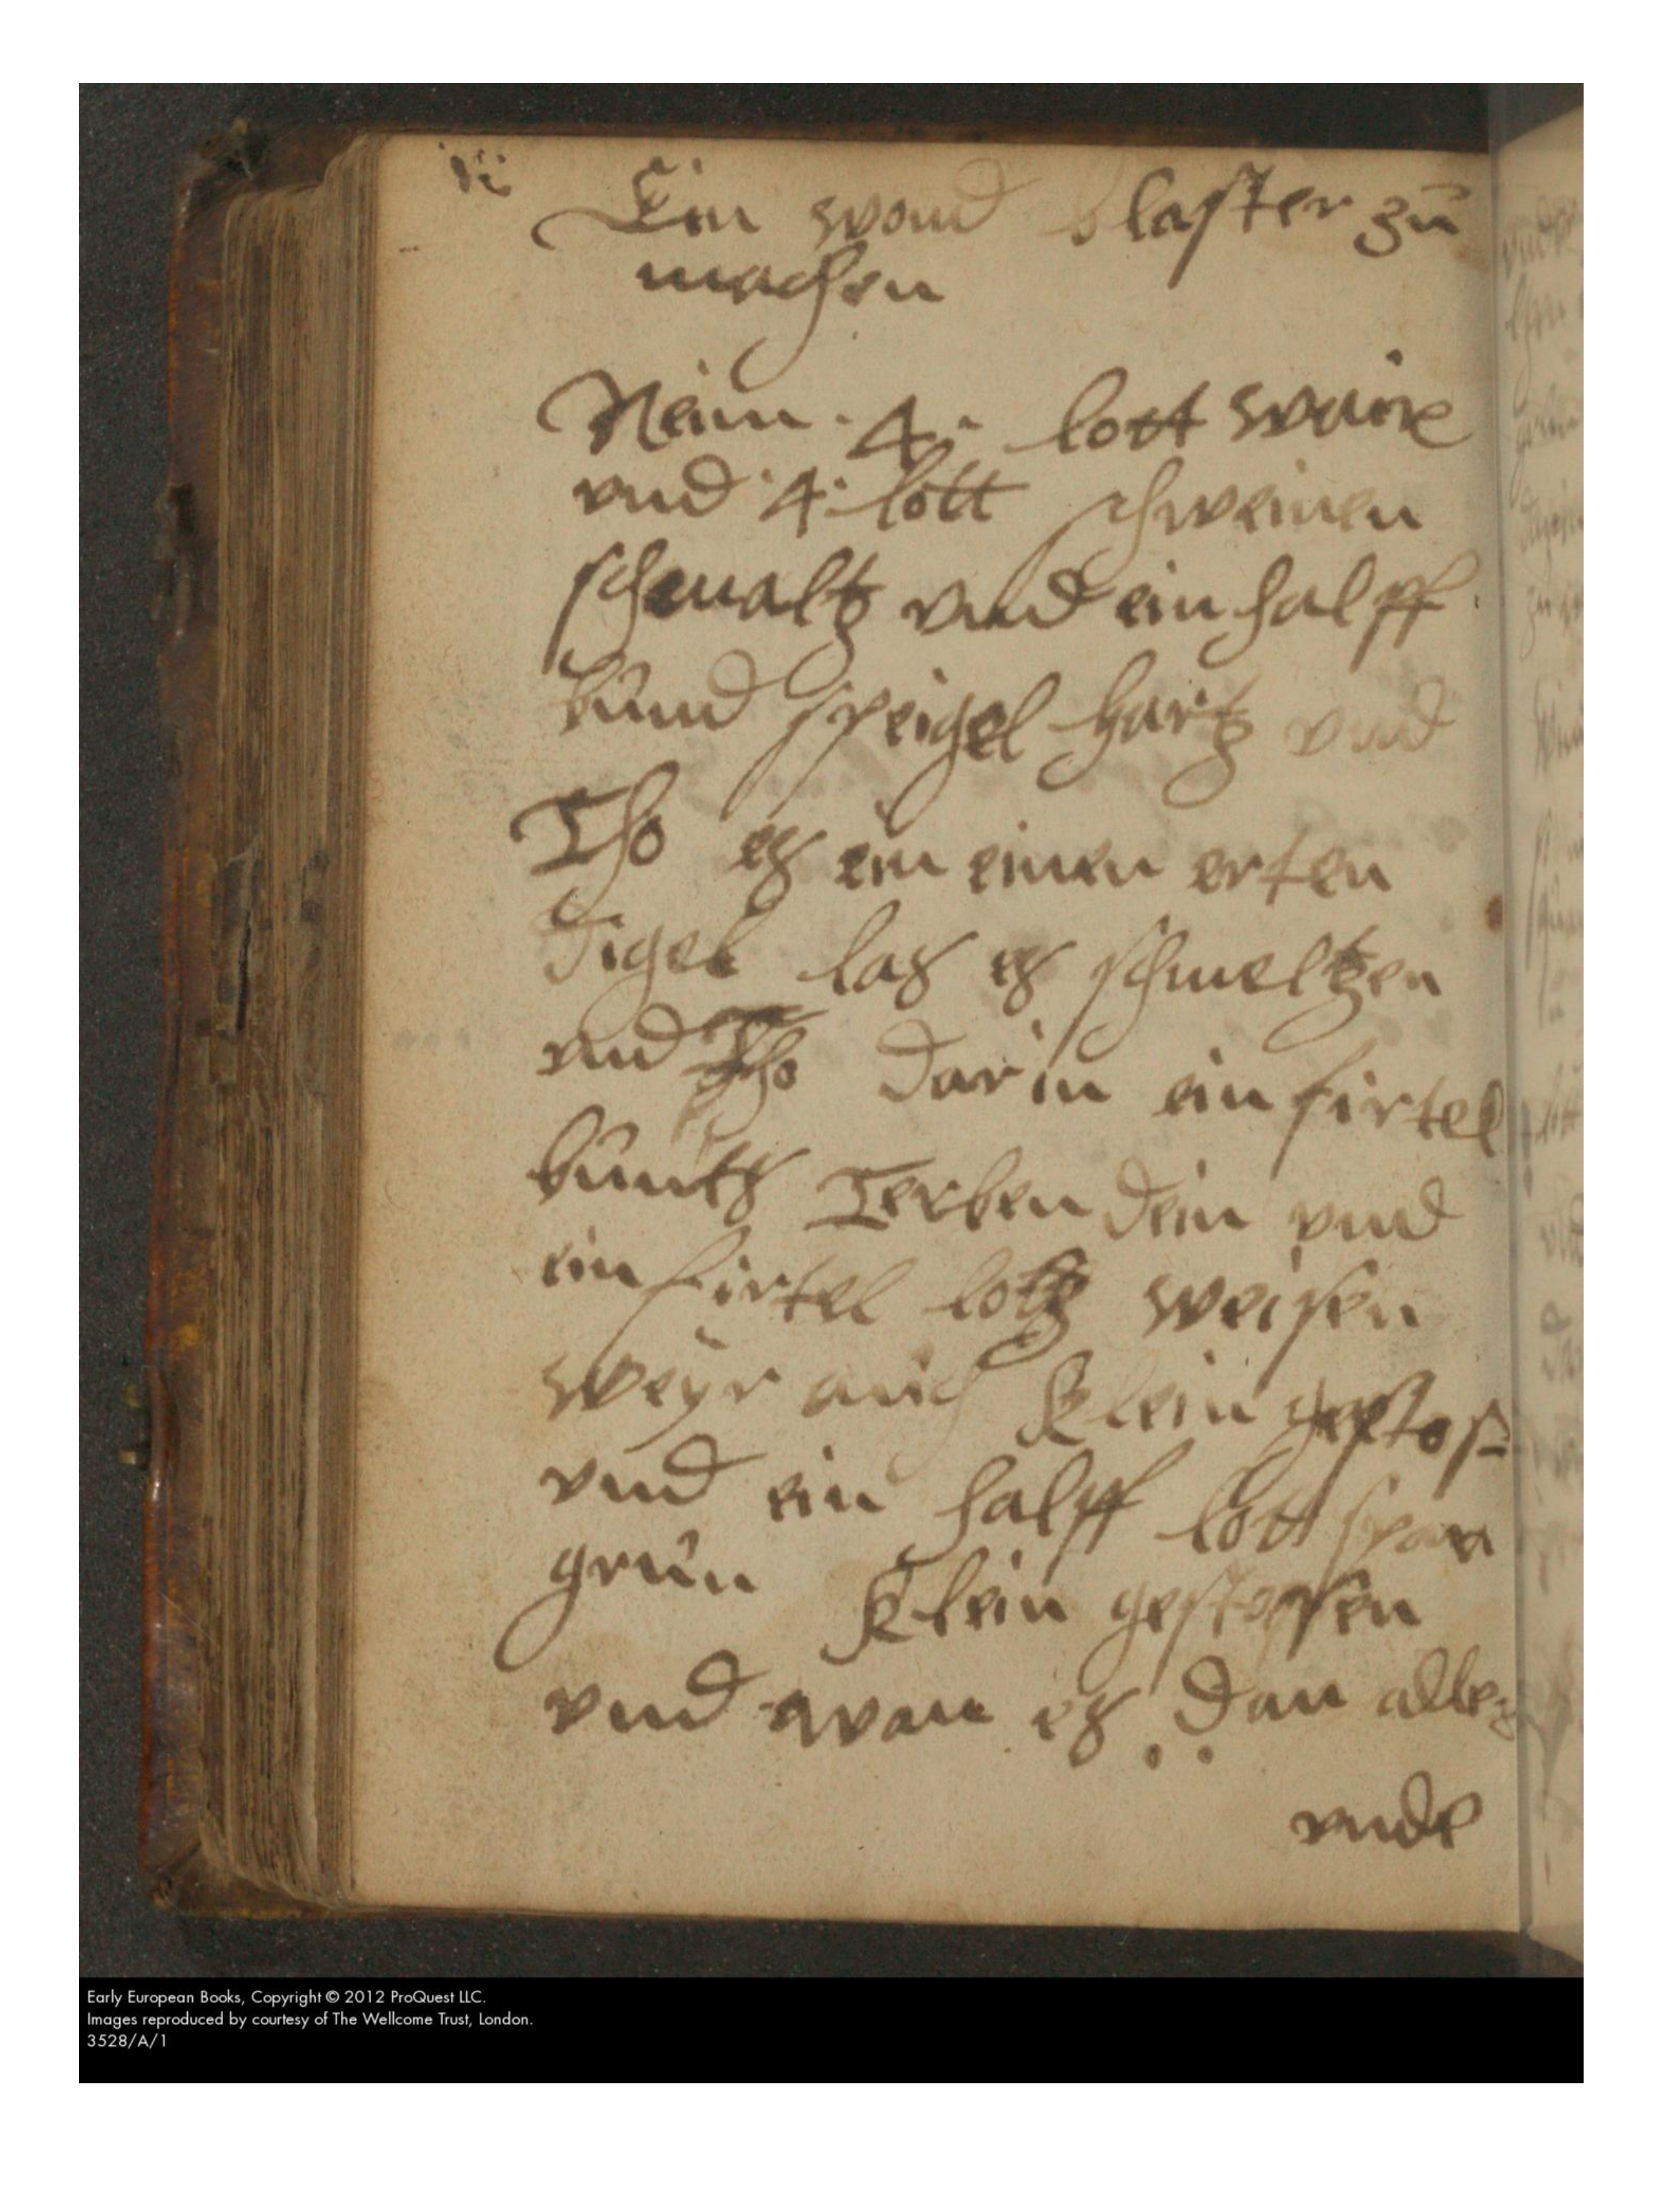 Ein wond blaster zu
machen
Nem . 4 . lott wax
vnd .4. lott schweinen
schmaltz vnd ein halff
bund speigel hartz vnd
Tho es ein einen erten
digel las es schmeltzen
vnd Tho darin ein firtel
buntz Terben dein vnd
ein firtel lotz weisen
weyr auch klein gestos
vnd ein halff lott span
grün klein gestossen
vnd wan es dan alles
vnder
Early European Books, Copyright © 2012 ProQuest LLC.
Images reproduced by courtesy of The Wellcome Trust, London.
3528/A/1